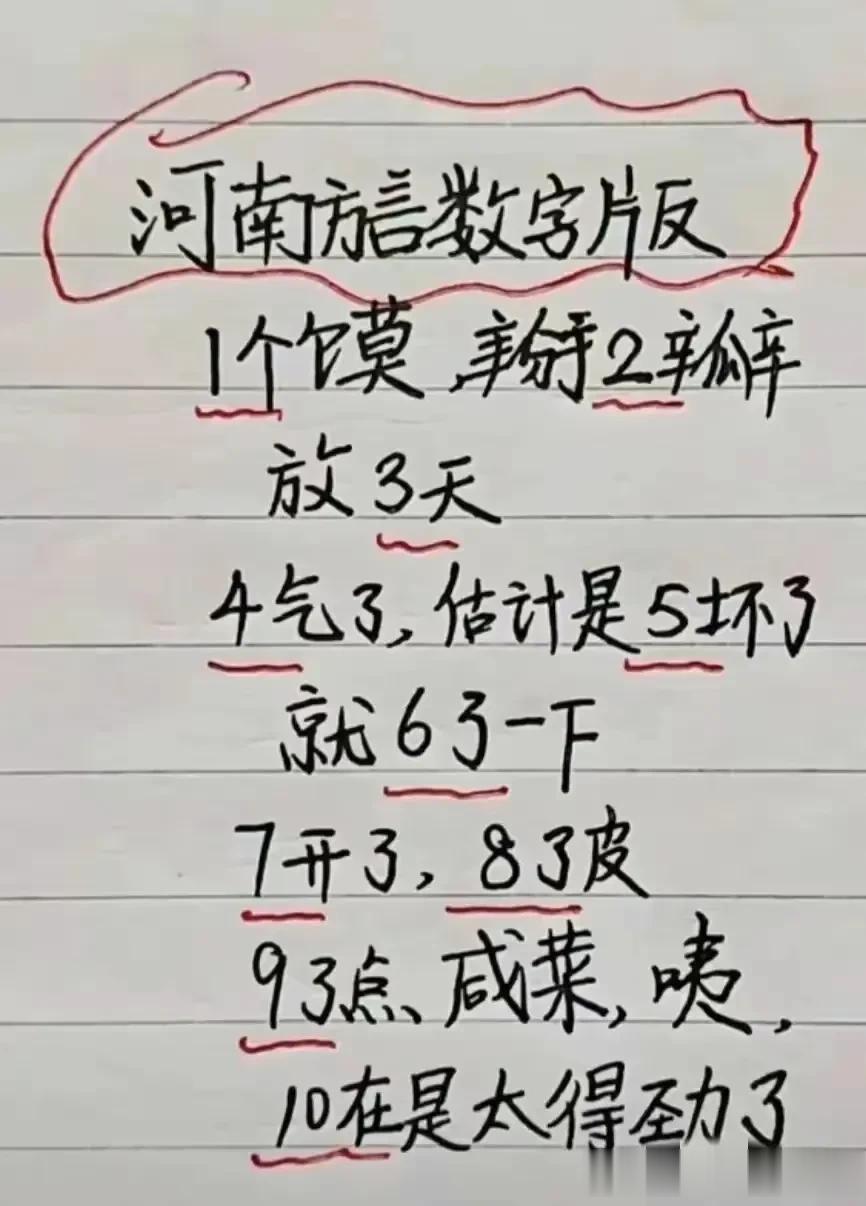 河南方言数字版
1个馍,掰2瓣
放3天
4气了,估计是5坏了
就6了一下
7开了,8了皮
93点咸菜,咦,
10在是太得劲了